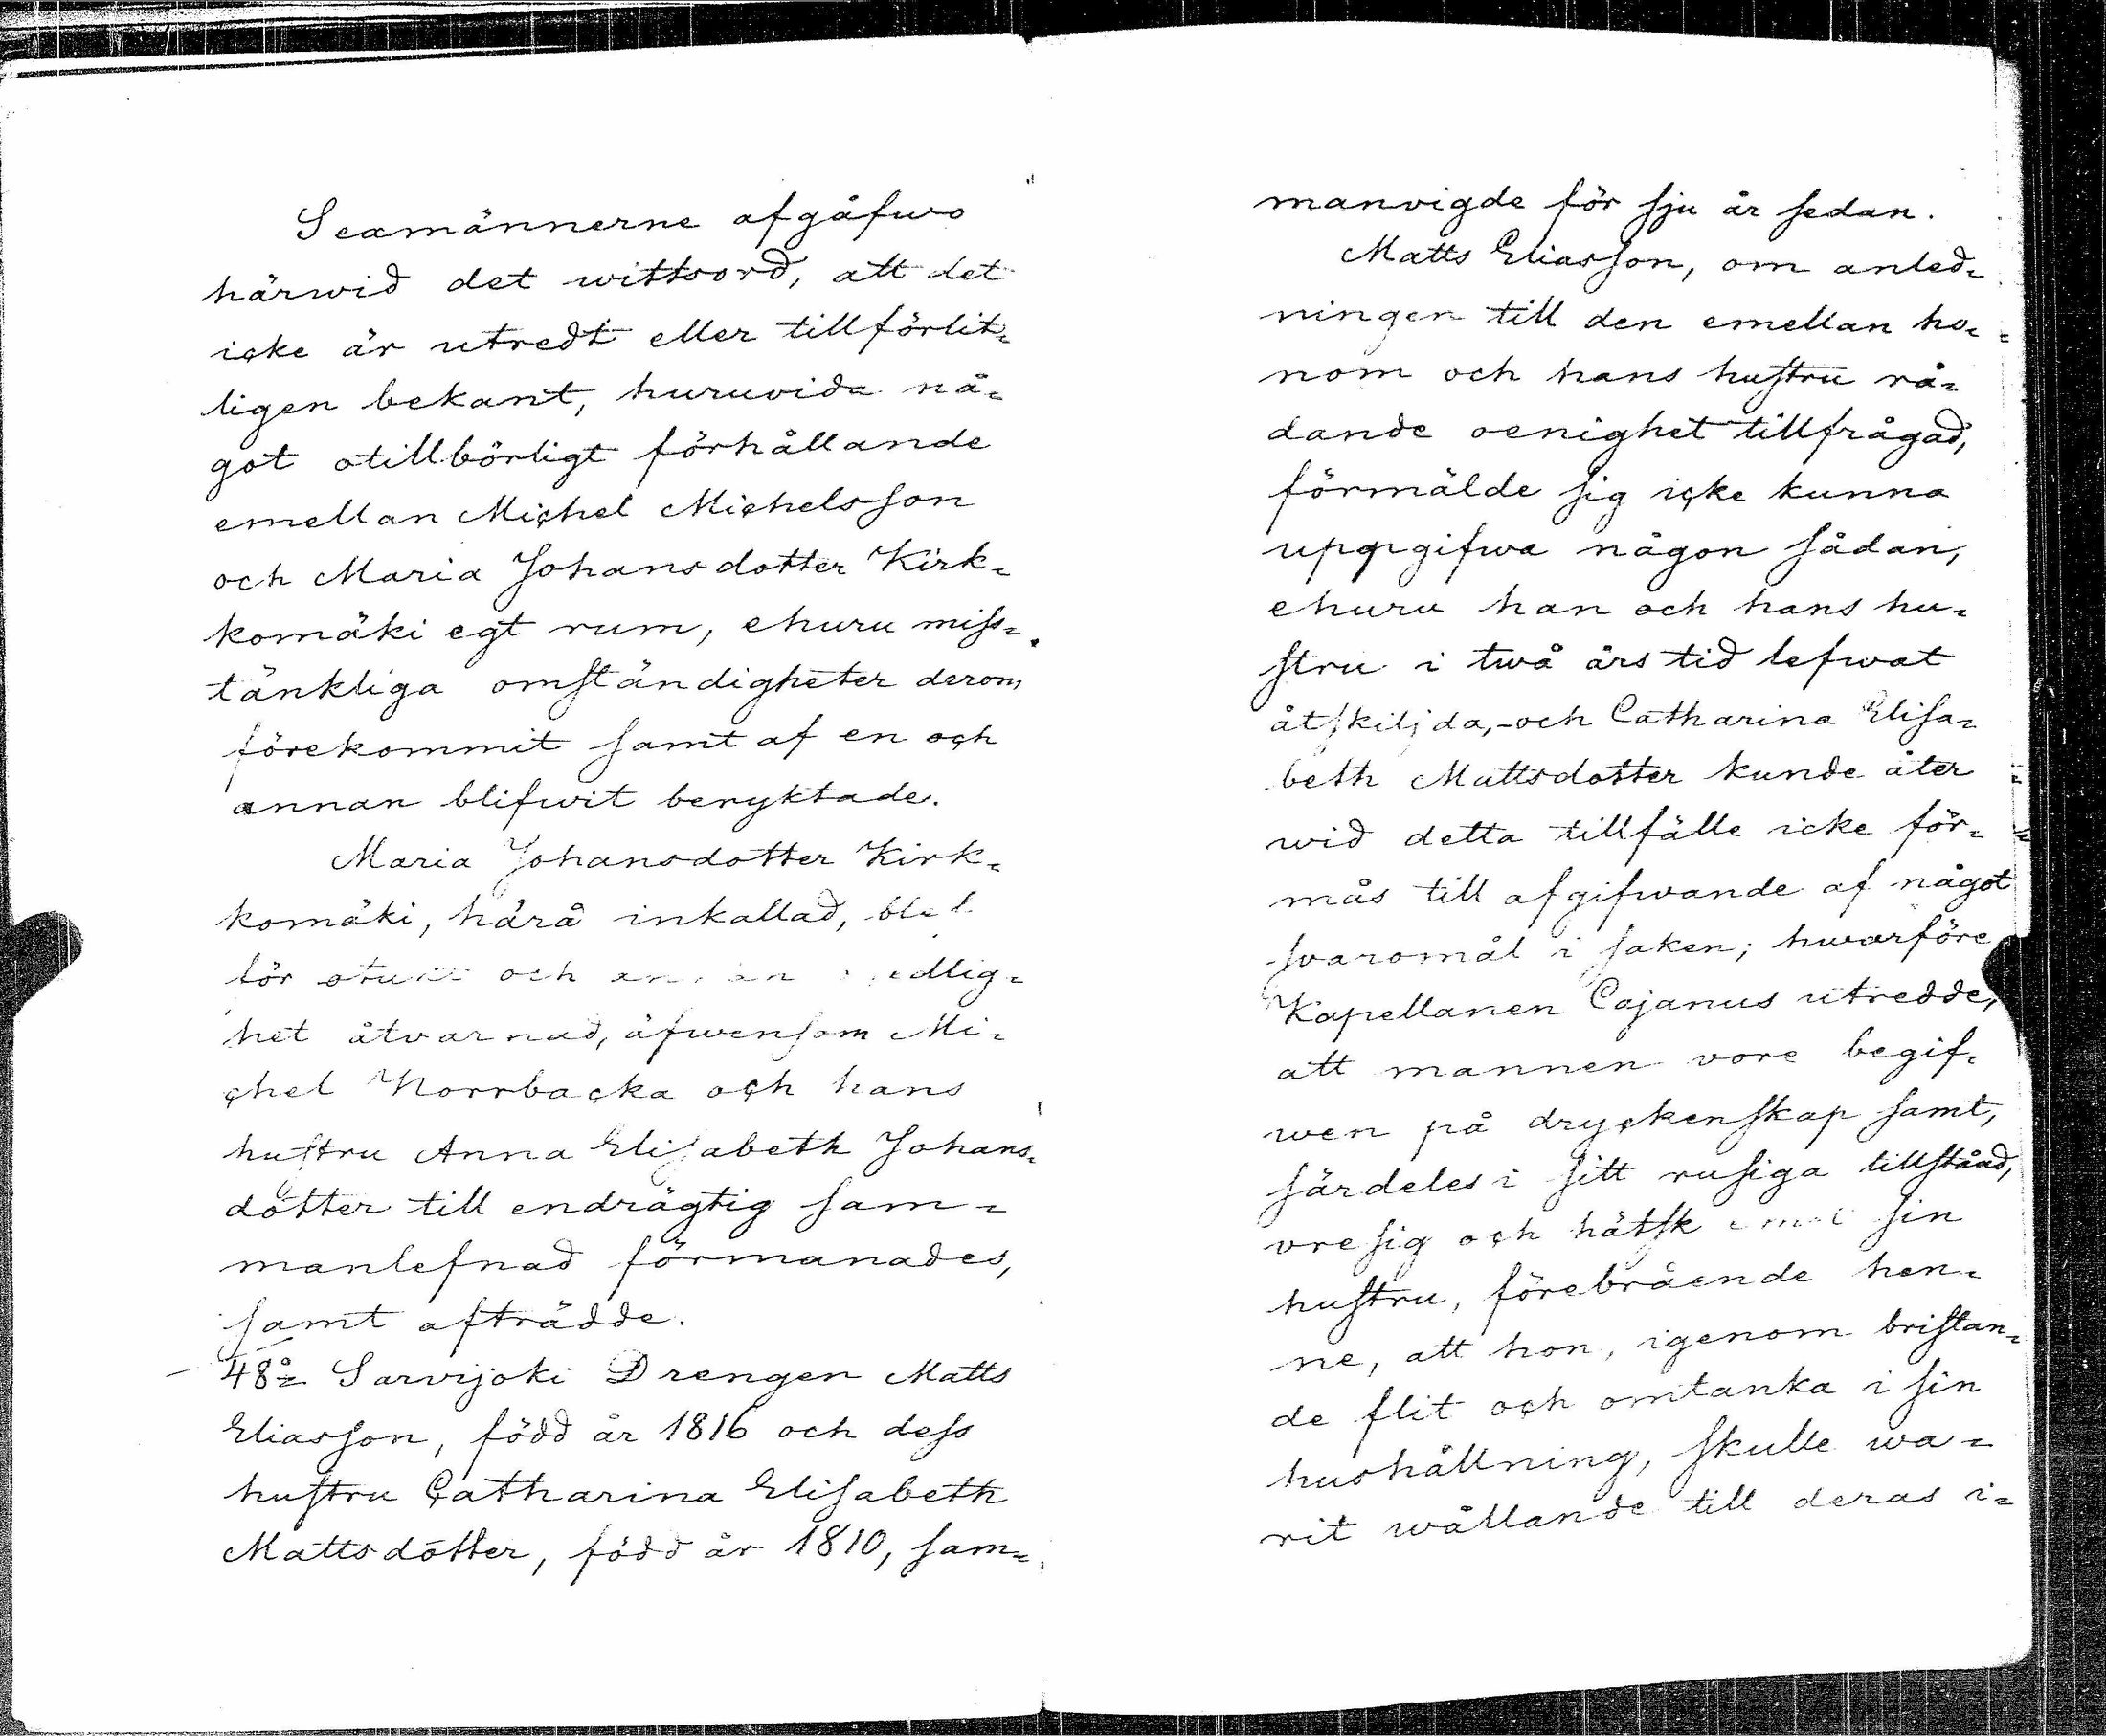 Sexmännerne afgåfwo
härwid det wittsord, att det
icke är utredt eller tillförlit=
ligen bekant, huruvida nå=
got otillbörligt förhållande
emellan Michel Michelsson
och Maria Johansdotter Kirk=
komäki egt rum, ehuru miss=
tänkliga omständigheter derom
förekommit samt af en och
annan blifwit beryktade.
Maria Johansdotter Kirk=
komäki, härå inkallad, blef
för otukt och annan
het åtvarnad, äfwensom Mi=
chel Norrbacka och hans
hustru Anna Elisabeth Johans=
dotter till endrägtig sam=
manlefnad förmanades,
samt afträdde.
48o= Sarvijoki Drengen Matts
Eliasson, född år 1816 och dess
hustru Catharina Elisabeth
Mattsdotter, född år 1810, sam=
manvigde för sju år sedan.
Matts Eliasson, om anled=
ningen till den emellan ho=
nom och hans hustru rå=
dande oenighet tillfrågad,
förmälde sig icke kunna
uppgifwa någon sådan,
ehuru han och hans hu=
stru i twå års tid lefwat
åtskiljda,-och Catharina Elisa=
beth Mattsdotter kunde åter
wid detta tillfälle icke för=
mås till afgifwande af något
svaromål i saken; hwarföre
Kapellanen Cajanus utredde,
att mannen vore begif=
wen på dryckenskap samt,
särdeles i sitt rusiga tillstånd,
vresig och hätsk emot sin
hustru, förebrående hen=
ne, att hon, igenom bristan=
de flit och omtanka i sin
hushållning, skulle wa=
rit wållande till deras i=